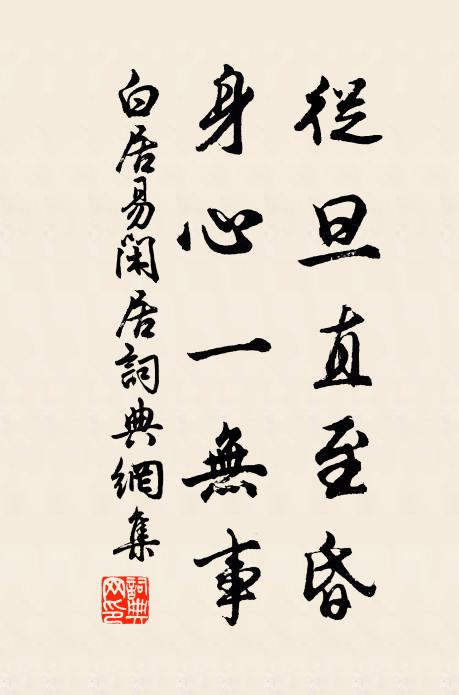 從旦直至昏
身心一無事
白居易閑居詞典網集
詞典網印